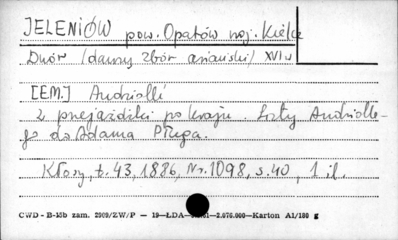 JELENIÓW pow. Opatów woj. Kielce
Dwór (dawny zbór ariański) XVI w
[EM.] Andriolli
Z przejażdżki po kraju. Listy Andriolle-
go do Adama Pługa.
Kłosy, t. 43, 1886, Nr. 1098, s. 40, 1 il.
CWD - B-15b zam. 2909/ZW/P — 19—ŁDA— —2.076.000—Karton A1/180 g